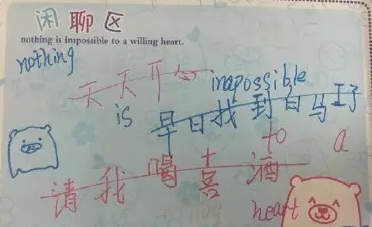 闲聊区
nothing is impossible to a willing heart.
nothing
天天开心
impossible
is
早日找到白马王子
to a
请我喝喜酒
heart